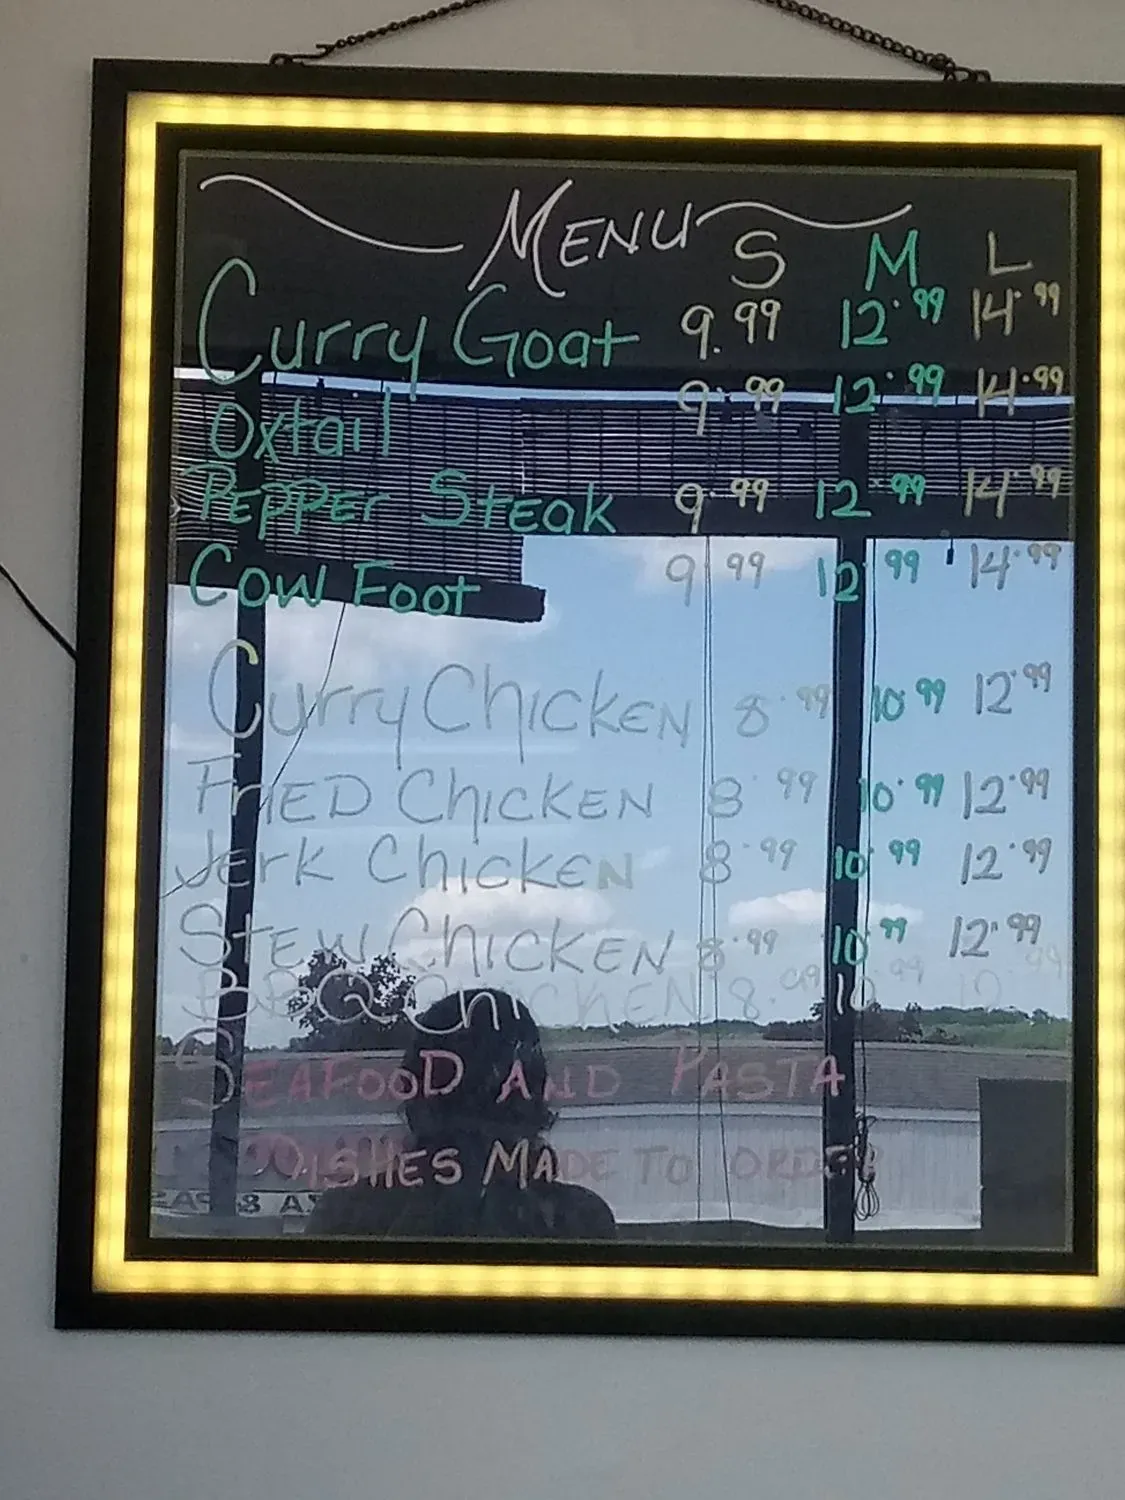 MENU
S M L
Curry Goat 9.99 12.99 14.99
Oxtail 9.99 12.99 14.99
PEPPEr STEak 9.99 12.99 14.99
COW Foot 9.99 12.99 14.99
Curry ChicKEN 8.99 10.99 12.99
FrIED ChicKEN 8.99 10.99 12.99
JErK ChicKEN 8.99 10.99 12.99
STEW ChicKEN 8.99 10.99 12.99
BBQ ChicKEN 8.99 10.99 12.99
SEAFOOD AND PASTA
DISHES MADE TO ORDER